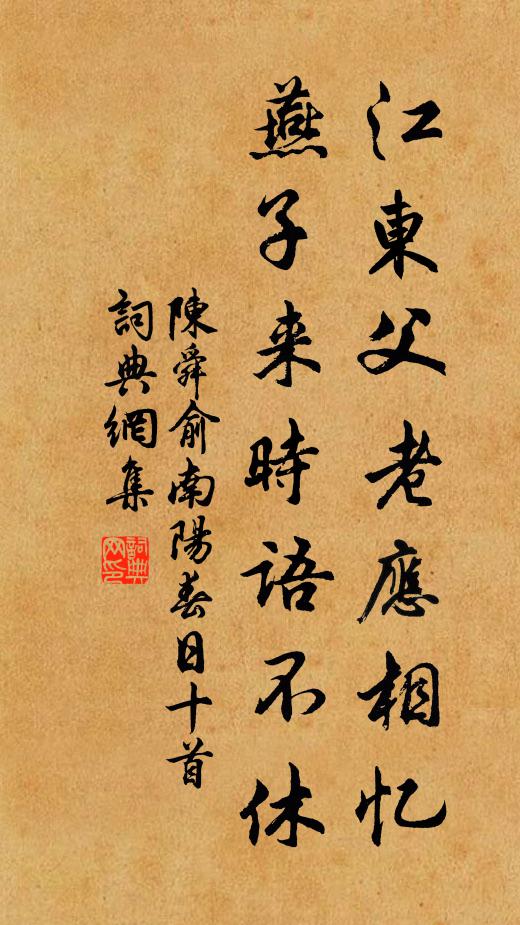 江東父老應相忆
燕子来時語不休
陳舜俞南陽春日十首
詞典網集
詞典
网印